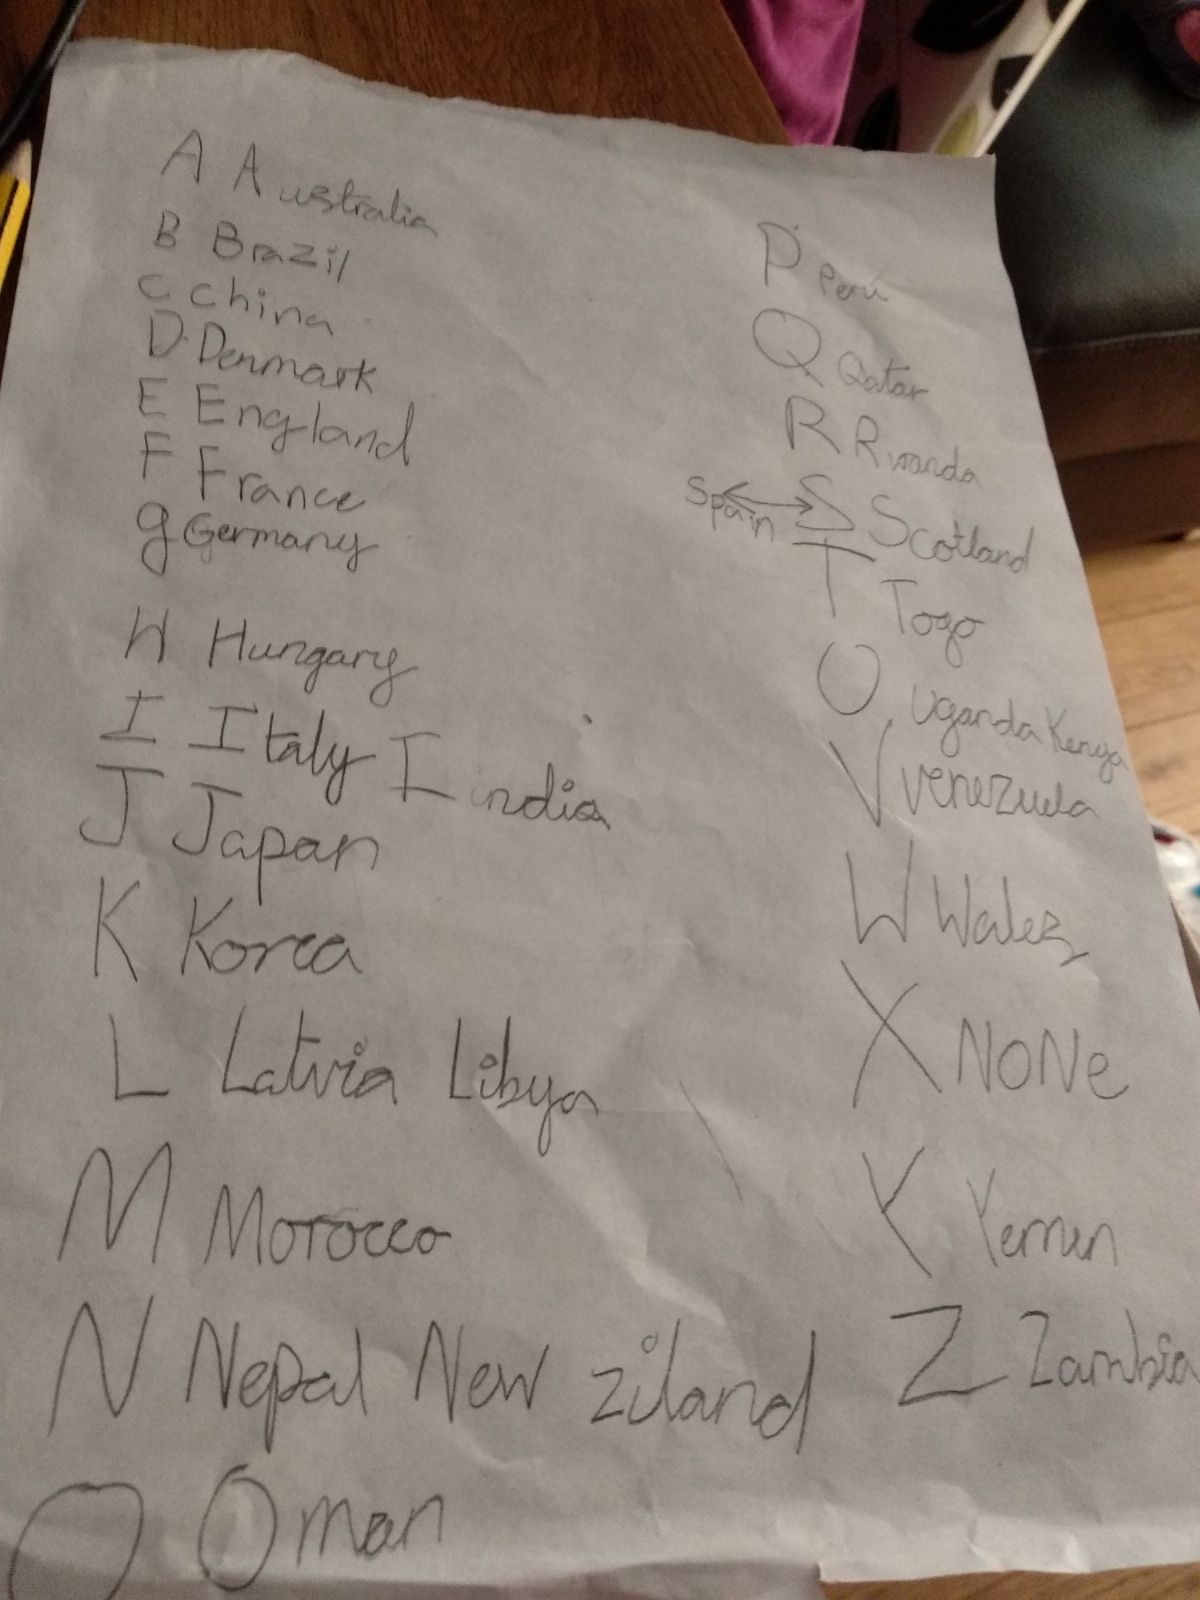 A Australia
B Brazil
C china
D. Denmark
E England
F France
g Germany
H Hungary
I Italy India
J Japan
K Korea
L Latvia Libya
M Morocco
N Nepal New ziland
O Oman
P Peru
Q Qatar
R Rwanda
Spain S Scotland
T Togo
U Uganda Kenya
V venezuela
W Wales
X NoNe
Y Yemen
Z Zambia